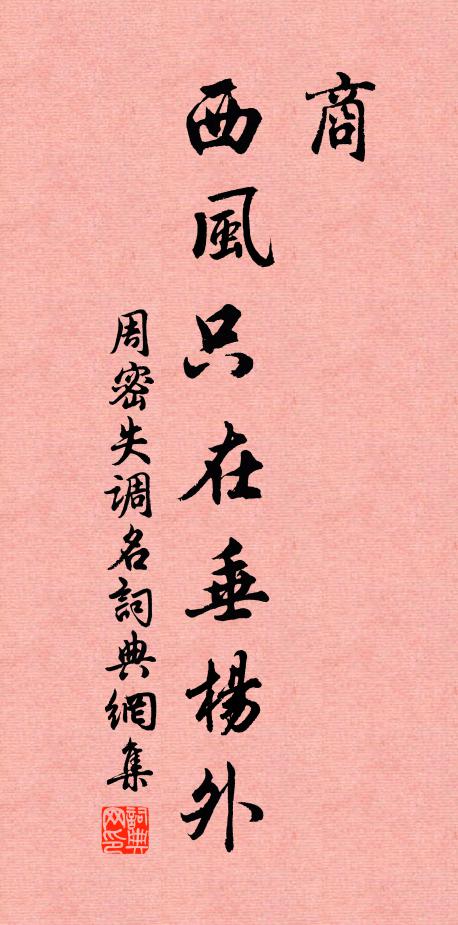 商
西風只在垂楊外
周密失调名詞典網集
詞典网印